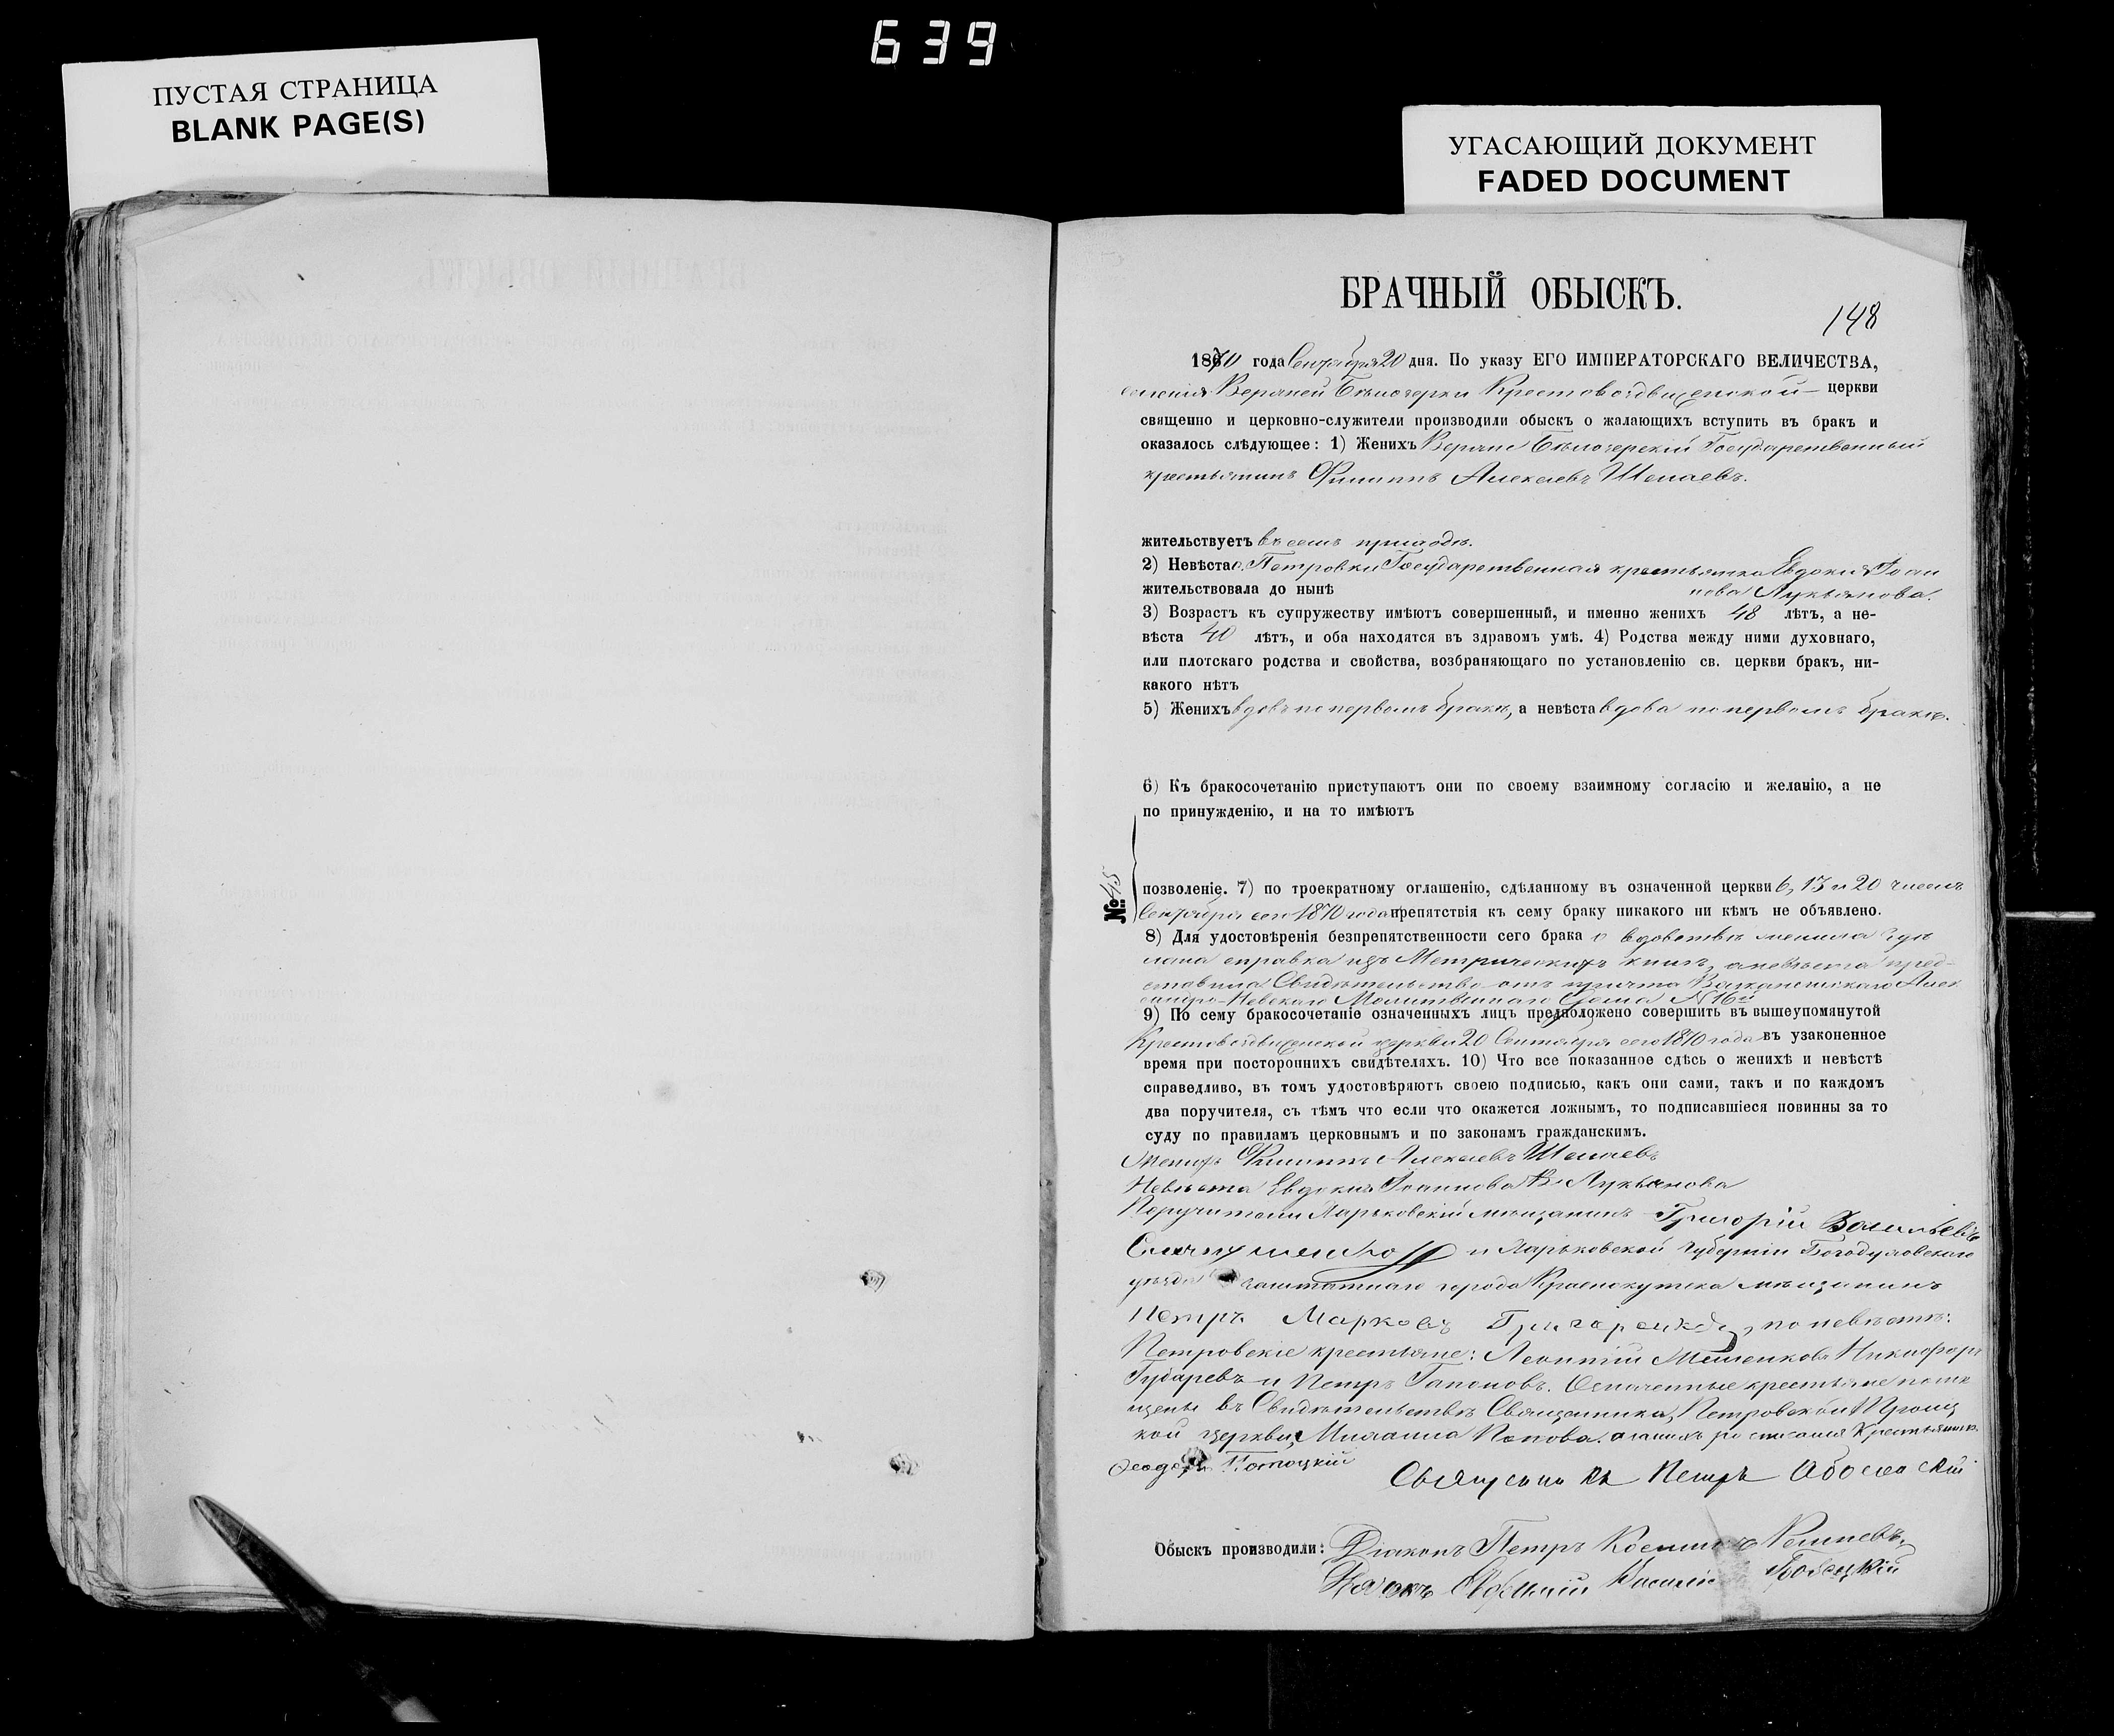 639
ПУСТАЯ СТРАНИЦА
BLANK PAGE(S)
УГАСАЮЩИЙ ДОКУМЕНТ
FADED DOCUMENT
БРАЧНЫЙ ОБЫСКЪ.
148
1870 года Сентября 20 дня. По указу ЕГО ИМПЕРАТОРСКАГО ВЕЛИЧЕСТВА,
селенія Верхней Бѣлозерки Крестовоздвиженской церкви
священно и церковно-служители производили обыскъ о жалающихъ вступить въ бракъ и
оказалось слѣдующее: 1) Женихъ Верхне Бѣлозерскій Государственный
крестьянинъ Филиппъ Алексѣевъ Шелаевъ.
жительствуетъ въ семъ приходѣ.
2) Невѣста с. Петровки Государственная крестьянка Евдокія Іоан
жительствовала до нынѣ нова Лукьянова.
3) Возрастъ къ супружеству имѣютъ совершенный, и именно женихъ 48 лѣтъ, а не-
вѣста 40 лѣтъ, и оба находятся въ здравомъ умѣ. 4) Родства между ними духовнаго,
или плотскаго родства и свойства, возбраняющаго по установленію св. церкви бракъ, ни-
какого нѣтъ
5) Женихъ вдовъ по первомъ бракѣ, а невѣста вдова по первомъ бракѣ.
6) Къ бракосочетанію приступаютъ они по своему взаимному согласію и желанію, а не
по принужденію, и на то имѣютъ
№ 45
позволеніе. 7) по троекратному оглашенію, сдѣланному въ означенной церкви 6, 13 и 20 чиселъ
Сентября сего 1870 года препятствія къ сему браку никакого ни кѣмъ не объявлено.
8) Для удостовѣренія безпрепятственности сего брака о вдовствѣ жениха сдѣ
лана справка изъ Метрическихъ книгъ, а невѣста пред-
ставила Свидѣтельство отъ причта Алек
сандро-Невскаго Молитвеннаго Дома N 16й
9) По сему бракосочетаніе означенныхъ лицъ предположено совершить въ вышеупомянутой
Крестовоздвиженской церкви 20 Сентября сего 1870 года въ узаконенное
время при постороннихъ свидѣтеляхъ. 10) Что все показанное сдѣсь о женихѣ и невѣстѣ
справедливо, въ томъ удостовѣряютъ своею подписью, какъ они сами, такъ и по каждомъ
два поручителя, съ тѣмъ что если что окажется ложнымъ, то подписавшіеся повинны за то
суду по правиламъ церковнымъ и по законамъ гражданскимъ.
Женихъ Филиппъ Алексѣевъ Шелаевъ
Невѣста Евдокія Іоаннова Лукьянова
Поручители Харьковскій мѣщанинъ Григорій Васильевъ
и Харьковской губерніи Богодуховскаго
уѣзда заштатнаго города Краснокутска мѣщанинъ
Петръ Марковъ Григоренко, по невѣстѣ:
Петровскіе крестьяне: Леонтій Никифоръ
Губаревъ и Петръ Гапоновъ. Означенные крестьяне помѣ
щены въ Свидѣтельствѣ Священника Петровской Троиц
кой церкви, Михаила Попова.
Феодоръ
Священникъ Петръ
Обыскъ производили: Діаконъ Петръ
Дьячокъ Евфимій